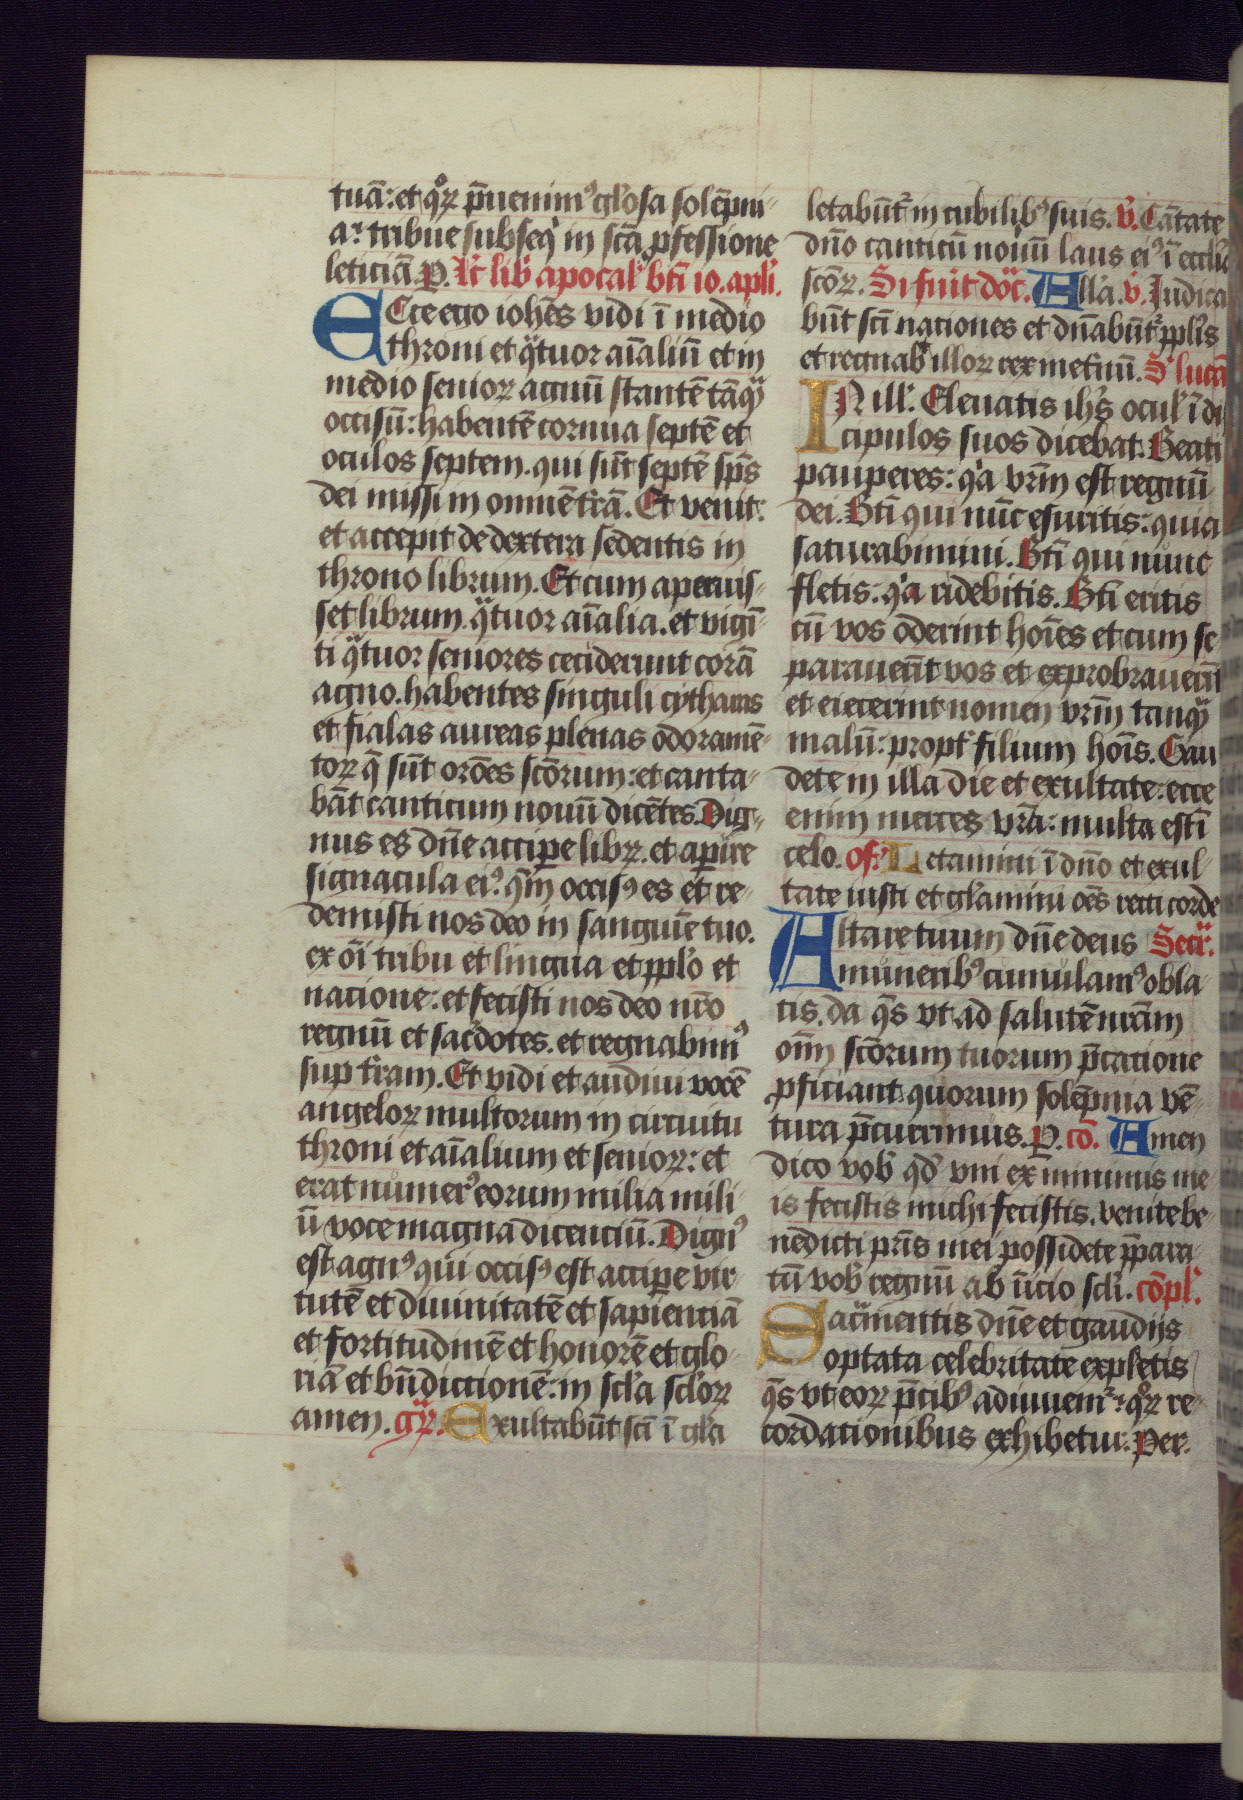 tuā: et qͦꝝ p̄uenimꝰ gl'osa solēpni
a: tribue subseq' in sc̄a ꝓfessione
leticiā. P. Lc̄ lib' apocal' bt̄i io. apl'i.
Ecce ego ioh̄es vidi ī medio
throni et qͣtuor aīaliū et in
medio senioꝝ agnū stantē tāqͣ
occisū: habentē cornua septē et
oculos septem. qui sūt septē sp̄s
dei missi in omnē t'rā. Et venit:
et accepit de dextera sedentis in
throno librum. Et cum aperuis-
set librum. qͣtuor aīalia. et vigī-
ti qͣtuor seniores ceciderunt corā
agno. habentes singuli cytharas
et fialas aureas plenas odoramē-
toꝝ q̄ sūt orōes sc̄orum: et canta-
bāt canticum nouū dicētes. Dig-
nus es dn̄e accipe libꝝ. et aperire
signacula eiꝰ. qm̄ occisꝰ es et re-
demisti nos deo in sanguīe tuo.
ex oī tribu et lingua et ppl'o et
nacione: et fecisti nos deo nr̄o
regnū et sac'dotes. et regnabimꝰ
sup t'ram. Et vidi et audiui vocē
angeloꝝ multorum in circuitu
throni et aīalium et senioꝝ: et
erat numerꝰ eorum milia mili-
ū voce magna dicenciū. Dignꝰ
est agnꝰ qui occisꝰ est accipe vir-
tutē et diuinitatē et sapienciā
et fortitudinē et honorē et glo-
riā et bn̄dictionē: in scl'a scl'oꝝ
amen. gͬ. Exultabūt sc̄i ī gl'a
letabūt' in cubilibꝰ suis. v̄. Cātate
dn̄o canticū nouū laus eiꝰ ī eccl'ia
sc̄oꝝ. Si fuīt dōc. All'a. v̄. Iudica-
būt sc̄i nationes et dn̄abūt' ppl'is
et regnab' illoꝝ rex in et'nū. S' lucā
IN ill'. Eleuatis ih̄s ocul' ī di
cipulos suos dicebat. Beati
pauperes: q'a vr̄m est regnū
dei. Bt̄i qui nūc esuritis: quia
saturabimini. Bt̄i qui nunc
fletis: q'a ridebitis. Bt̄i eritis
cū vos oderint hoīes et cum se
parauerīt vos et exprobrauerīt
et eiecerint nomen vr̄m tanqͣ
malū: propt' filium hoīs. Gau
dete in illa die et exultate: ecce
enim merces vr̄a: multa est ī
celo. of. Letamini ī dn̄o et exul-
tate iusti et gl'amini oēs recti corde
Altare tuum dn̄e deus Secr̄.
muneribꝰ cumulamꝰ obla
tis. da q̄s vt ad salutē nr̄am
oīm sc̄orum tuorum p̄catione
ꝓficiant quorum solēpnia vē-
tura p̄currimus. P. cō. Amen
dico vob' qd' vni ex minimis me
is fecistis michi fecistis. venite be-
nedicti pr̄is mei possidete p̄para
tū vob' regnū ab īicio scl'i. cōpl'.
Sacͣmentis dn̄e et gaudijs
optata celebritate expletis
q̄s vt eoꝝ p̄cibꝰ adiuuem': qͦꝝ re-
cordationibus exhibetur. Per.